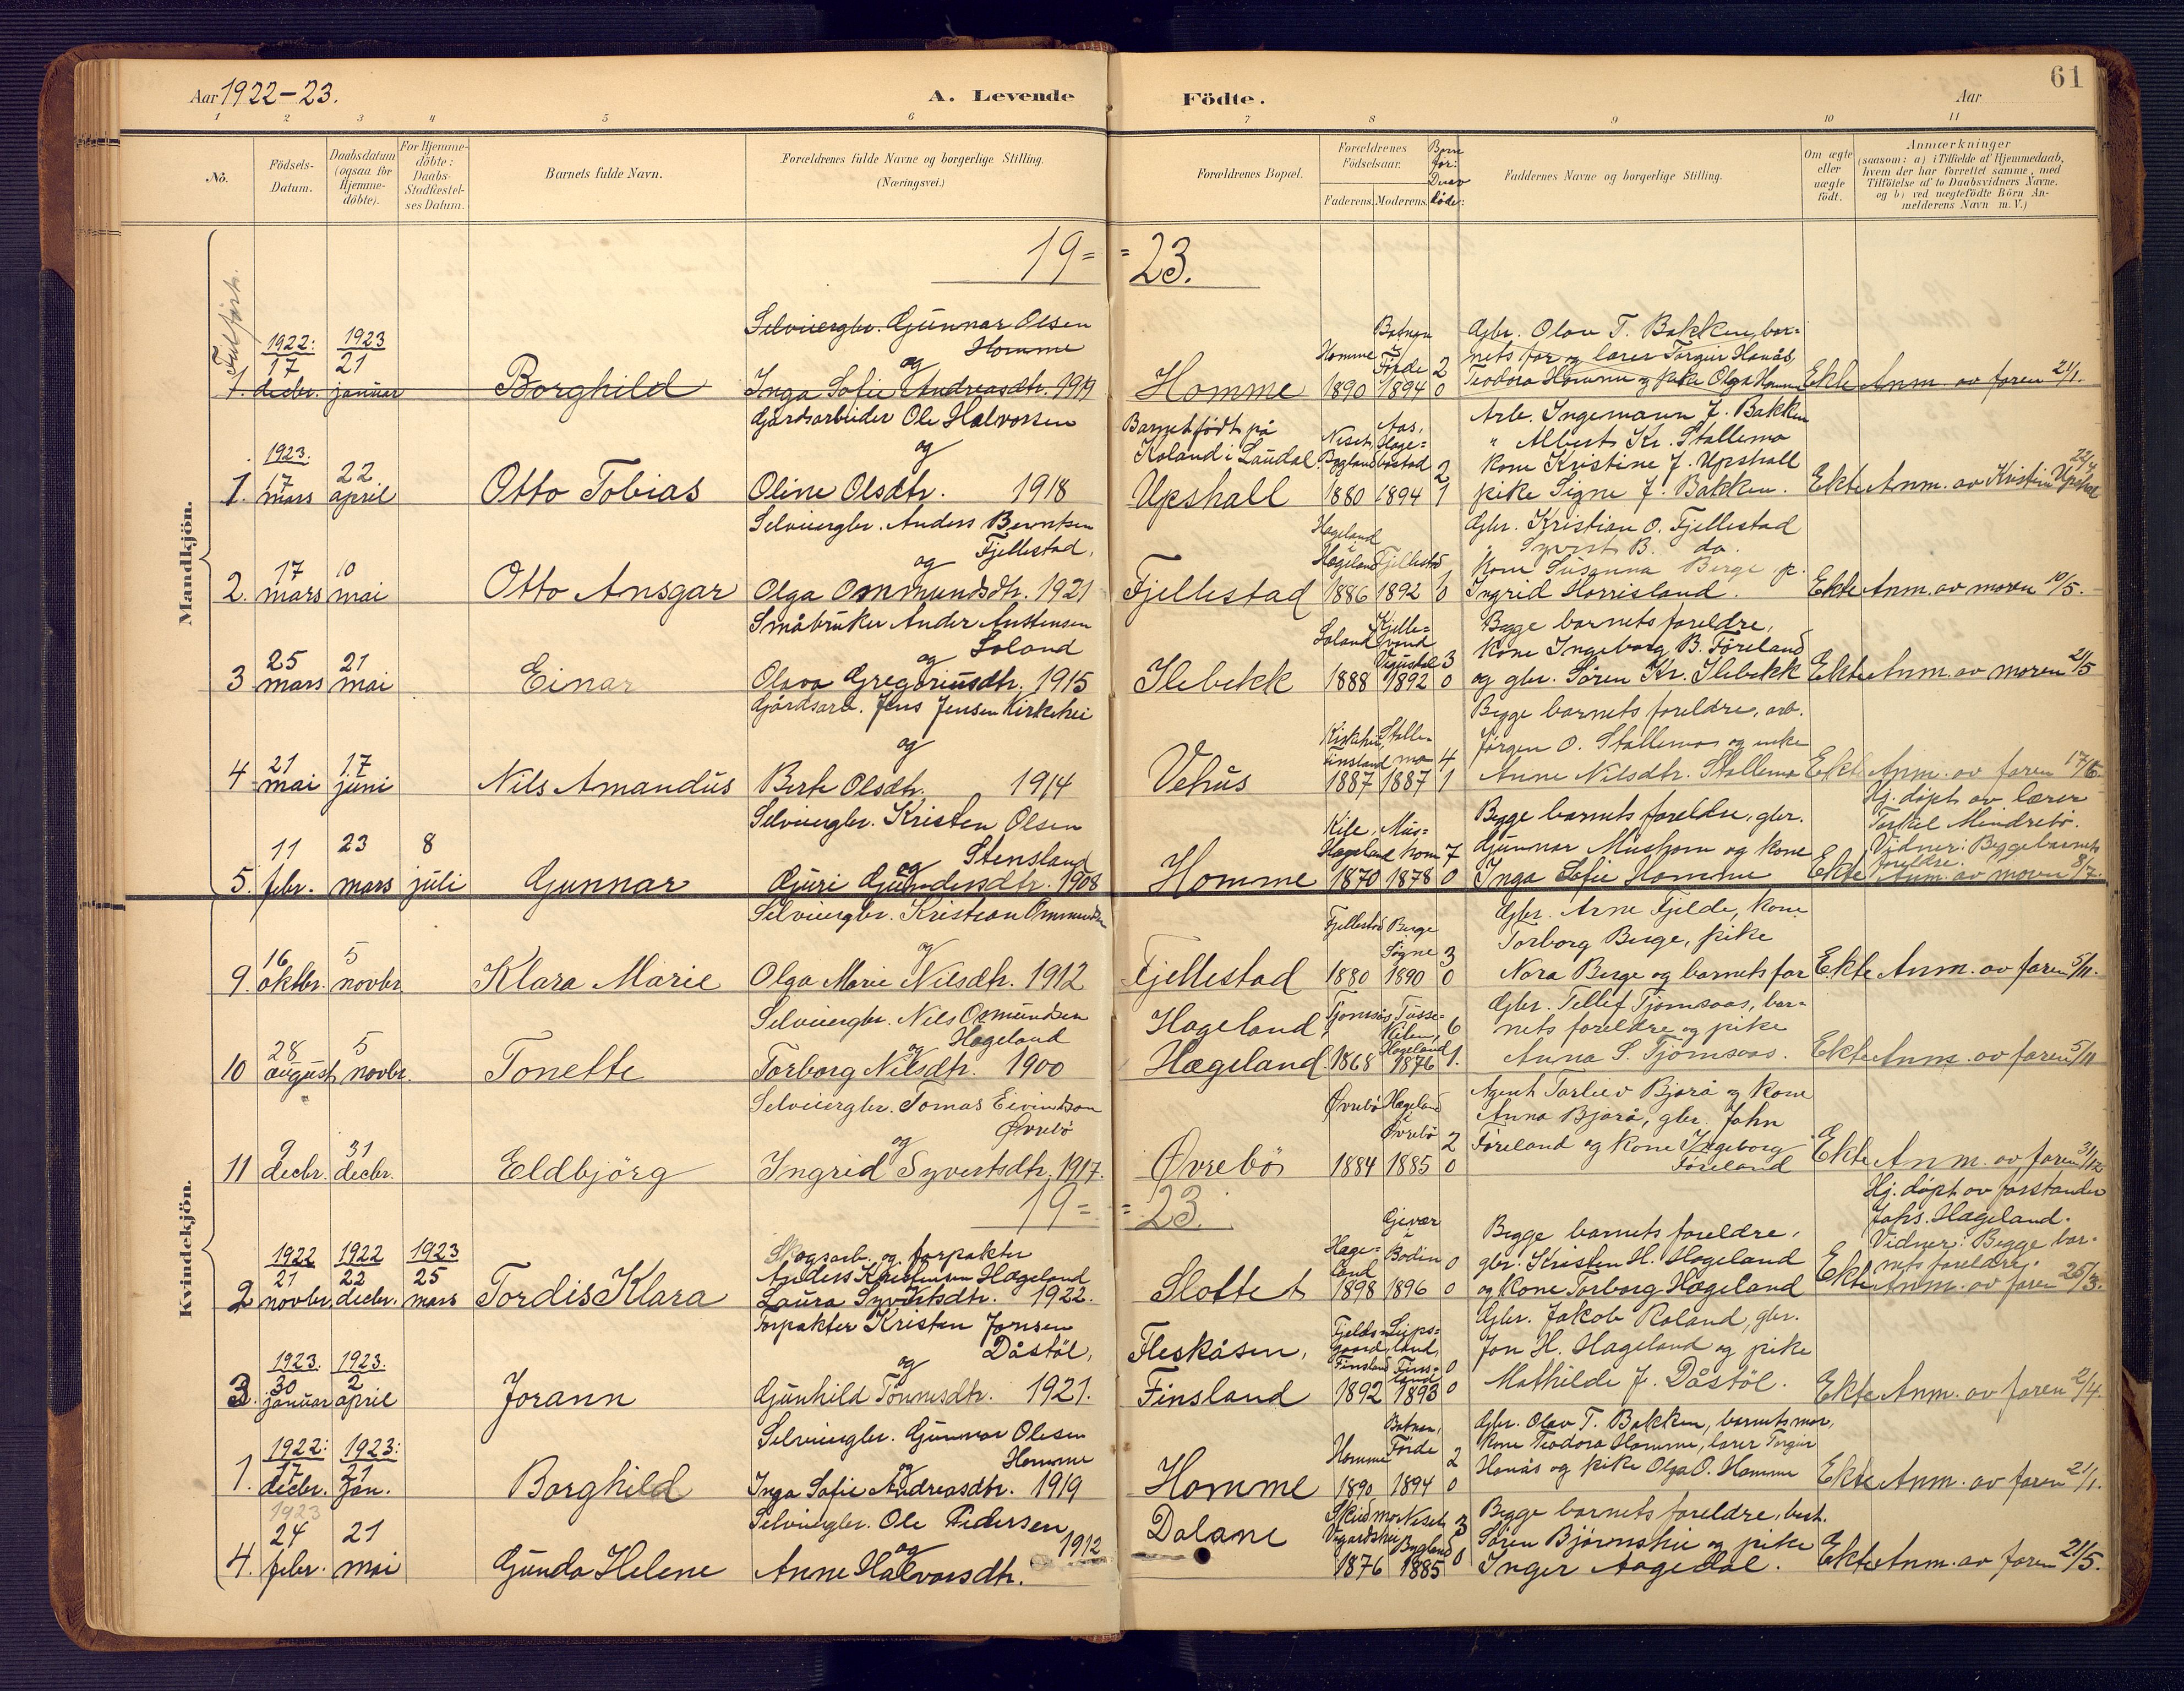 Aar 1922-23.
A. Levende
Födte.
Aar
61
1 2 3 4 5 6 7 8 9 10 11
Nô.
Födsels-
Datum.
Daabsdatum
(ogsaa for
Hjemme-
döbte).
For Hjemme-
döbte:
Daabs-
Stadfæstel-
ses Datum.
Barnets fulde Navn.
Forældrenes fulde Navne og borgerlige Stilling.
(Næringsvei.)
Forældrenes Bopæl.
Forældrenes
Födselsaar.
Faderens. Moderens.
Børn
før:
Derav
døde:
Faddernes Navne og borgerlige Stilling.
Om ægte
eller
uægte
födt.
Anmærkninger
(saasom: a) i Tilfælde af Hjemmedaab,
hvem der har forrettet samme, med
Tilföielse af to Daabsvidners Navne.
og b) ved uægtefödte Börn An-
melderens Navn m. V.)
Mandkjön.
19= =23.
Feilført.
1922: 1923
17 21
1. decbr. januar
Borghild
Selveiergbr. Gunnar Olsen
Homme
og
Inga Sofie Andreasdtr. 1919
Homme
Homme
1890
Førde
1894
2
0
Gbr. Olav T. Bakken, bar=
nets far og lærer Torgeir Honås,
Teodora Homme og pike Olga Homme
Ekte
Anm. av faren 21/1.
1923.
17 22
1. mars april
Otto Tobias
Gårdsarbeider Ole Halvorsen
og
Oline Olsdtr. 1918
Barnet født på
Roland i Laudal.
Upshall
Neset,
Bygland
1880
Aas,
Hæge=
bostad
1894
2
1
Arb. Ingemann J. Bakken
" Albert Kr. Stallemo
kone Kristine J. Upshall
pike Signe J. Bakken.
Ekte
Anm. av Kristine Upshall 22/4
17 10
2. mars mai
Otto Ansgar
Selveiergbr. Anders Berntsen
Fjellestad,
og
Olga Ommundsdtr. 1921
Fjellestad
Hageland
i
Hægeland
1886
Fjellestad
1892
1
0
Gbr. Kristian O. Fjellestad
" Syvert B. do.
Kone Susanna Berge, p.
Ingrid Horrisland.
Ekte
Anm. av moren 10/5.
25 21
3 mars mai
Einar
Småbruker Ander Austensen
Soland
og
Olava Gregoriusdtr. 1915
Ilebekk
Soland
1888
Kjelle=
vand
Vegusdal
1892
3
0
Begge barnets foreldre,
kone Ingeborg B. Føreland
og gbr. Søren Kr. Ilebekk
Ekte
Anm. av moren 21/5
21 17
4 mai juni
Nils Amandus
Gårdsarb. Jens Jensen Kirkehei
og
Berte Olsdtr. 1914
Vehus
Kirkehei,
Finsland
1887
Stalle=
mo
1887
4
1
Begge barnets foreldre, arb.
Jørgen O. Stallemo og enke
Anne Nilsdtr. Stallemo
Ekte
Anm. av faren 17/6.
11 23 8
5. febr. mars juli
Gunnar
Selveiergbr. Kristen Olsen
Stensland
og
Guri Gundersdtr. 1908
Homme
Kile,
Hægeland
1870
Mus=
hom
1878
7
0
Begge barnets foreldre, gbr.
Gunnar Mushom og kone
Inga Sofie Homme
Ekte
Hj. døpt av lærer
Torkel Mindrebø.
Vidner: Begge barnets
foreldre.
Anm. av moren 8/7.
Kvindekjön.
16 5
9. oktbr. novbr.
Klara Marie
Selveiergbr. Kristian Ommundsen
og
Olga Marie Nilsdtr. 1912
Fjellestad
Fjellestad
1880
Berge
Søgne
1890
3
0
Gbr. Arne Fjelde, kone
Torborg Berge, pike
Nora Berge og barnets far
Ekte
Anm. av faren 5/11.
28 5
10 august novbr.
Tonette
Selveiergbr. Nils Osmundsen
Hageland
og
Torborg Nilsdtr. 1900
Hageland,
Hægeland.
Tjomsås,
1868
Tusse=
kilen,
Hægeland
1876
6
1.
Gbr. Tellef Tjomsaas, bar=
nets foreldre og pike
Anna S. Tjomsaas.
Ekte
Anm. av faren 5/11
9 31
11 decbr. decbr.
Eldbjörg
Selveiergbr. Tomas Eivindson
Øvrebö
og
Ingrid Syvertsdtr. 1917.
Øvrebö
Øvrebö
1884
Hægeland
i
Øvrebö
1885
2
0
Agent Tarlev Bjorå og kone
Anna Bjorå, gbr. John
Føreland og kone Ingeborg
Føreland
Ekte
Anm. av faren 31/12
19= =23.
1922 1922 1923
21 22 25
2 novbr. decbr. mars
Tordis Klara
Skogsarb. og forpakter
Anders Kristensen Hageland
Laura Syvertsdtr. 1922.
Slottet
Hage=
land
1898
Gjevær
i
Bodin
1896
0
0
Begge barnets foreldre,
gbr. Kristen H. Hageland
og kone Torborg Hægeland
Ekte
Hj. døpt av forstander
Johs. Hageland.
Vidner: Begge bar=
nets foreldre.
Anm. av faren 25/3.
1923. 1923.
30 2
3. januar april
Jorann
Forpakter Kristen Jonsen
Dåstöl,
og
Gunhild Tønnesdtr. 1921.
Fleskåsen,
Finsland
Fjelds=
gaard,
Finsland
1892
land,
Fins=
land
1893
0
0
Gbr. Jakob Roland, gbr.
Jon H. Hageland og pike
Mathilde J. Dåstöl.
Ekte
Anm. av faren 2/4.
1922: 1923:
17 21
1. decbr. Jan.
Borghild
Selveiergbr. Gunnar Olesen
Homme
og
Inga Sofie Andreasdtr. 1919
Homme
Homme
1890
Førde
1894
2
0
Gbr. Olav T. Bakken, barnets mor,
kone Teodora Homme, lærer Torgeir
Honås og pike Olga O. Homme
Ekte
Anm. av faren 21/1.
1923
24 21
4. febr. mai
Gunda Helene
Selveiergbr. Ole Pedersen
og 1912
Anne Halvorsdtr.
Dalane
Skeidmo
Vegardshei
1876
Neset
Bygland
1885
3
0
Begge barnets foreldre, best.
Søren Björnshei og pike
Inger Aagedal.
Ekte
Anm. av faren 21/5.